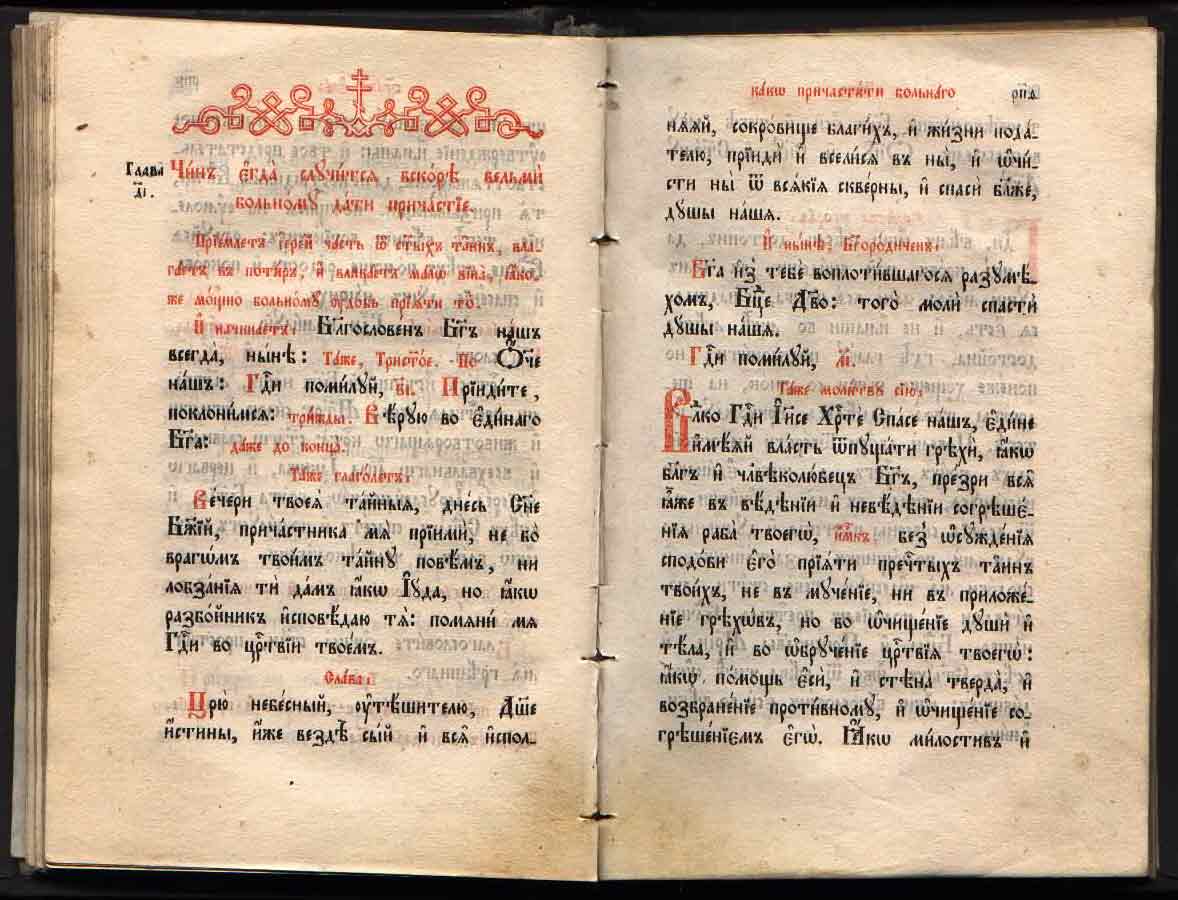 Глава̀
д҃і.
Чи́нъ є҆гда̀ случи́тсѧ вско́рѣ вельмѝ
больно́му да́ти прича́стїе.
Прїе́млетъ і҆ере́й ча́сть ѿ ст҃ы́хъ та́инъ, вла-
га́етъ въ поти́ръ, и҆ влива́етъ ма́лѡ вїна̀, ꙗ҆́ко-
же мо́щно больно́му ᲂу҆до́бь прїѧ́ти то̀.
И҆ начина́етъ: Бл҃гослове́нъ Бг҃ъ на́шъ
всегда̀, ны́нѣ: Та́же, Трист҃о́е. По Ѻ҆́че
на́шъ: Гд҇и поми́луй, в҃і. Прїиди́те,
поклони́мсѧ: три́жды. Вѣ́рую во є҆ди́наго
Бг҃а: да́же до конца̀.
Та́же глаго́летъ:
Ве́чери твоеѧ̀ та́йныѧ, дне́сь Сн҃е
Бж҃їй, прича́стника мѧ̀ прїимѝ, не бо̀
врагѡ́мъ твои̑мъ та́йну повѣ́мъ, ни
лобза́нїѧ тѝ да́мъ ꙗ҆́кѡ І҆ꙋ́да, но ꙗ҆́кѡ
разбо́йник и҆сповѣ́даю тѧ̀: помѧнѝ мѧ
Гд҇и во цр҇твїи твое́мъ.
Сла́ва:
Цр҃ю̀ небе́сный, ᲂу҆тѣ́шителю, Дш҃е
и҆́стины, и҆́же вездѣ̀ сы́й и҆ всѧ̑ и҆спол-
ка́кѡ причасти́ти больна́го
рп҃а
нѧ́ѧй, сокро́вище благи́хъ, и҆ жи́зни пода́-
телю, прїидѝ и҆ всели́сѧ въ ны̀, и҆ ѡ҆чи́-
сти ны̀ ѿ всѧ́кїѧ скве́рны, и҆ спасѝ бл҃же,
дꙋ́шы на́шѧ.
И҆ ны́нѣ, Бг҃оро́диченъ:
Бг҃а и҆з̾ тебє̀ воплоти́вшагосѧ разꙋмѣ́-
хомъ, Бц҃е Дв҃о: того̀ молѝ спастѝ
дꙋ́шы на́шѧ.
Гд҇и поми́луй, м҃.
Та́же моли́твꙋ сїю̀:
Вл҃ко Гд҇и І҆и҃се Хр҇тѐ Сп҃асе на́шъ, є҆ди́не
и҆мѣ́ѧй вла́сть ѿпꙋща́ти грѣхѝ, ꙗ҆́кѡ
бл҃гъ и҆ чл҃вѣколю́бецъ Бг҃ъ, пре́зри всѧ̑
ꙗ҆̀же въ вѣ́дѣнїи и҆ невѣ́дѣнїи согрѣше́-
нїѧ раба̀ твоегѡ̀, и҆́м҃къ без̾ ѡ҆сꙋжде́нїѧ
сподо́би є҆го̀ прїѧ́ти пречⷭ҇тыхъ та́инъ
твои́хъ, не въ мꙋче́нїе, ни въ приложе́-
нїе грѣхѡ́въ, но во ѡ҆чище́нїе дꙋшѝ и҆
тѣ́ла, и҆ во ѡ҆брꙋче́нїе цр҇твїѧ твоегѡ̀:
ꙗ҆́кѡ по́мощь є҆сѝ, и҆ стѣна̀ тверда̀, и҆
возбране́нїе проти́вномꙋ, и҆ ѡ҆чище́нїе со-
грѣше́нїємъ є҆гѡ̀. Ꙗ҆́кѡ ми́лостивъ и҆